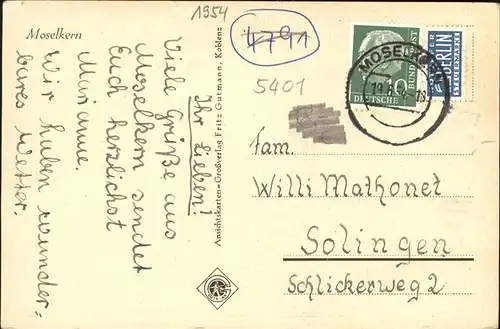 Moselkern
1954
4791
5401
Ihr Lieben!
Viele Grüße aus
Moselkern sendet
Euch herzlichst
Marianne.
Wir haben wunder-
bares Wetter.
Ansichtskarten-Großverlag Fritz Gutmann, Koblenz
DEUTSCHE BUNDESPOST
10
NOTOPFER
2 BERLIN
STEUERMARKE
MOSELKERN
Fam.
Willi Mathonet
Solingen
Schlickerweg 2